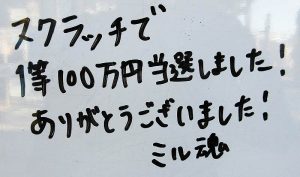 スクラッチで
1等100万円当選しました!
ありがとうございました!
ミル魂